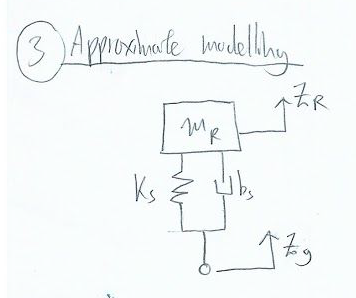 3 Approximate modelling
Z_R
m_R
K_s b_s
Z_g